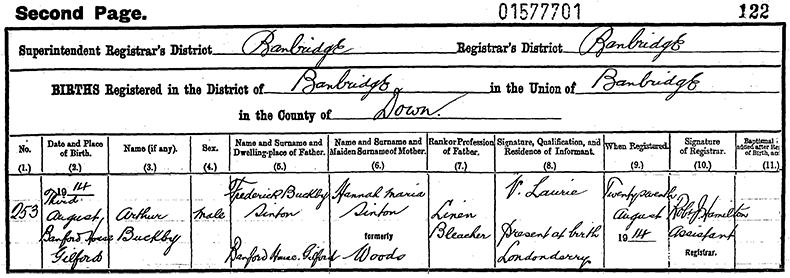 Second Page. 01577701 122
Superintendent Registrar's District Banbridge Registrar's District Banbridge
BIRTHS Registered in the District of Banbridge in the Union of Banbridge
in the County of Down.
No. Date and Place of Birth. Name (if any). Sex. Name and Surname and Dwelling-place of Father. Name and Surname and Maiden Surname of Mother. Rank or Profession of Father. Signature, Qualification, and Residence of Informant. When Registered. Signature of Registrar. Baptismal added after Re of Birth, an
(1.) (2.) (3.) (4.) (5.) (6.) (7.) (8.) (9.) (10.) (11.)
1914 Frederick Buckby Hannah Maria V. Laurie Twenty seventh
Third
253 August, Arthur Male Sinton Sinton Linen August Robt J Hamilton
Banford House Buckby formerly Bleacher Present at birth 1914 Assistant
Gilford Banford House. Gilford Woods Londonderry Registrar.